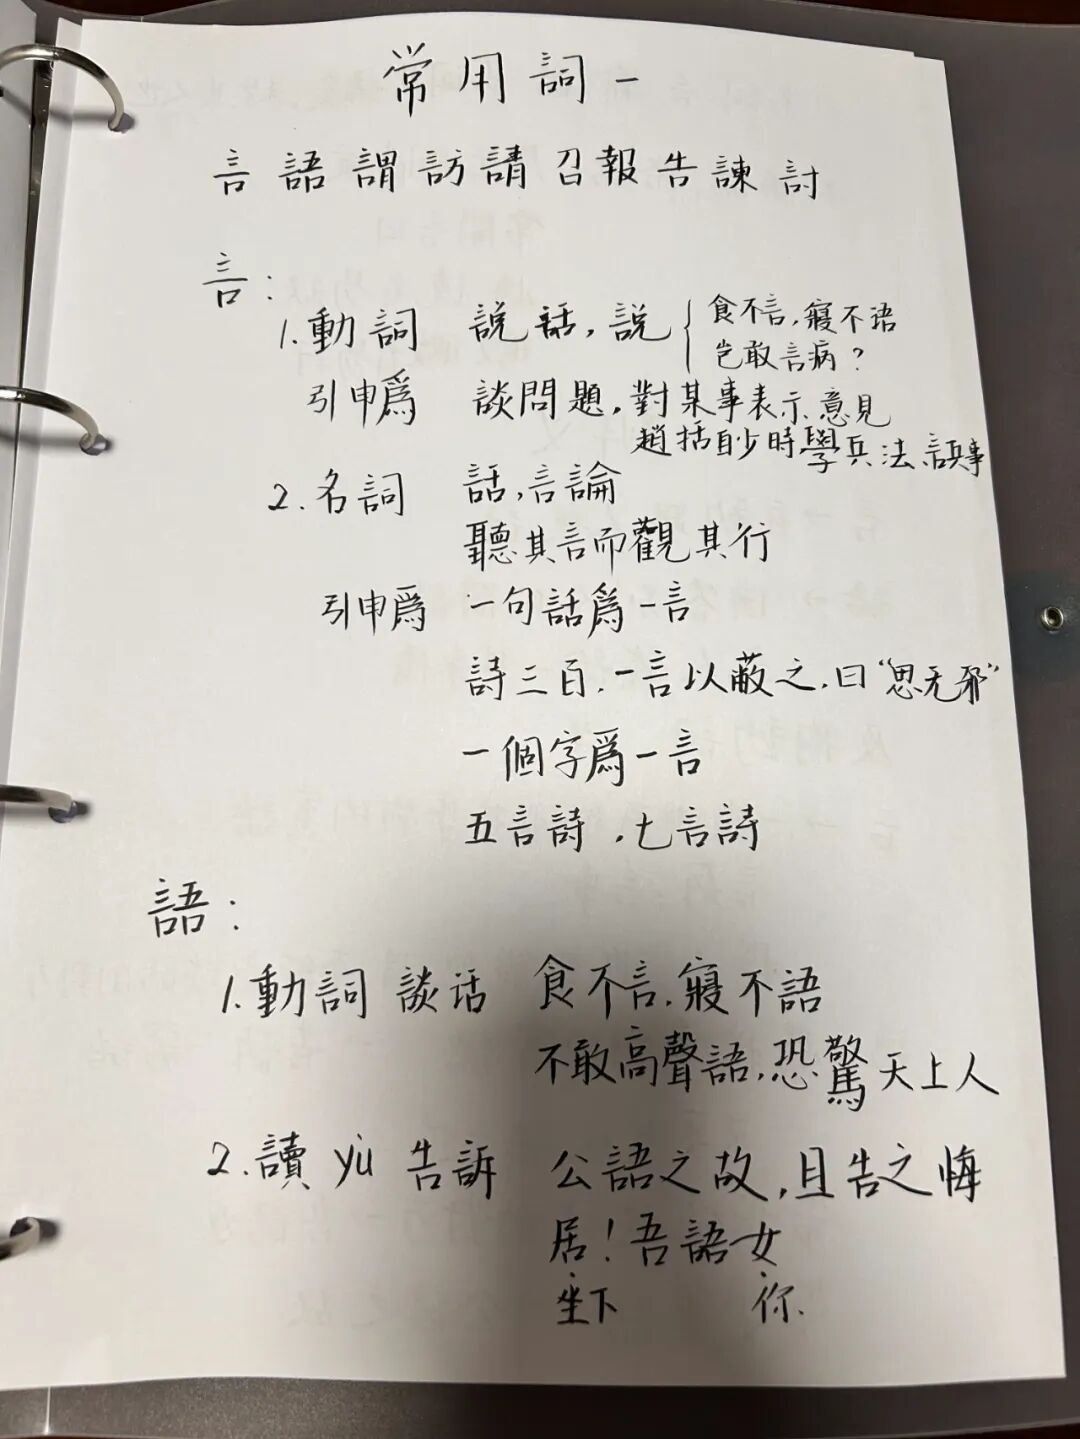 常用詞一
言 語 謂 訪 請 召 報 告 諫 討
言：
1.動詞 說話，說 { 食不言，寢不语
岂敢言病？
引申爲 談問題，對某事表示意見
趙括自少時，學兵法，言兵事
2.名詞 話，言論
聽其言而觀其行
引申爲 一句話爲一言
詩三百，一言以蔽之，曰“思无邪”
一個字爲一言
五言詩，七言詩
語：
1.動詞 談话 食不言，寢不語
不敢高聲語，恐驚天上人
2.讀 yù 告訴 公語之故，且告之悔
居！吾語女
坐下 你